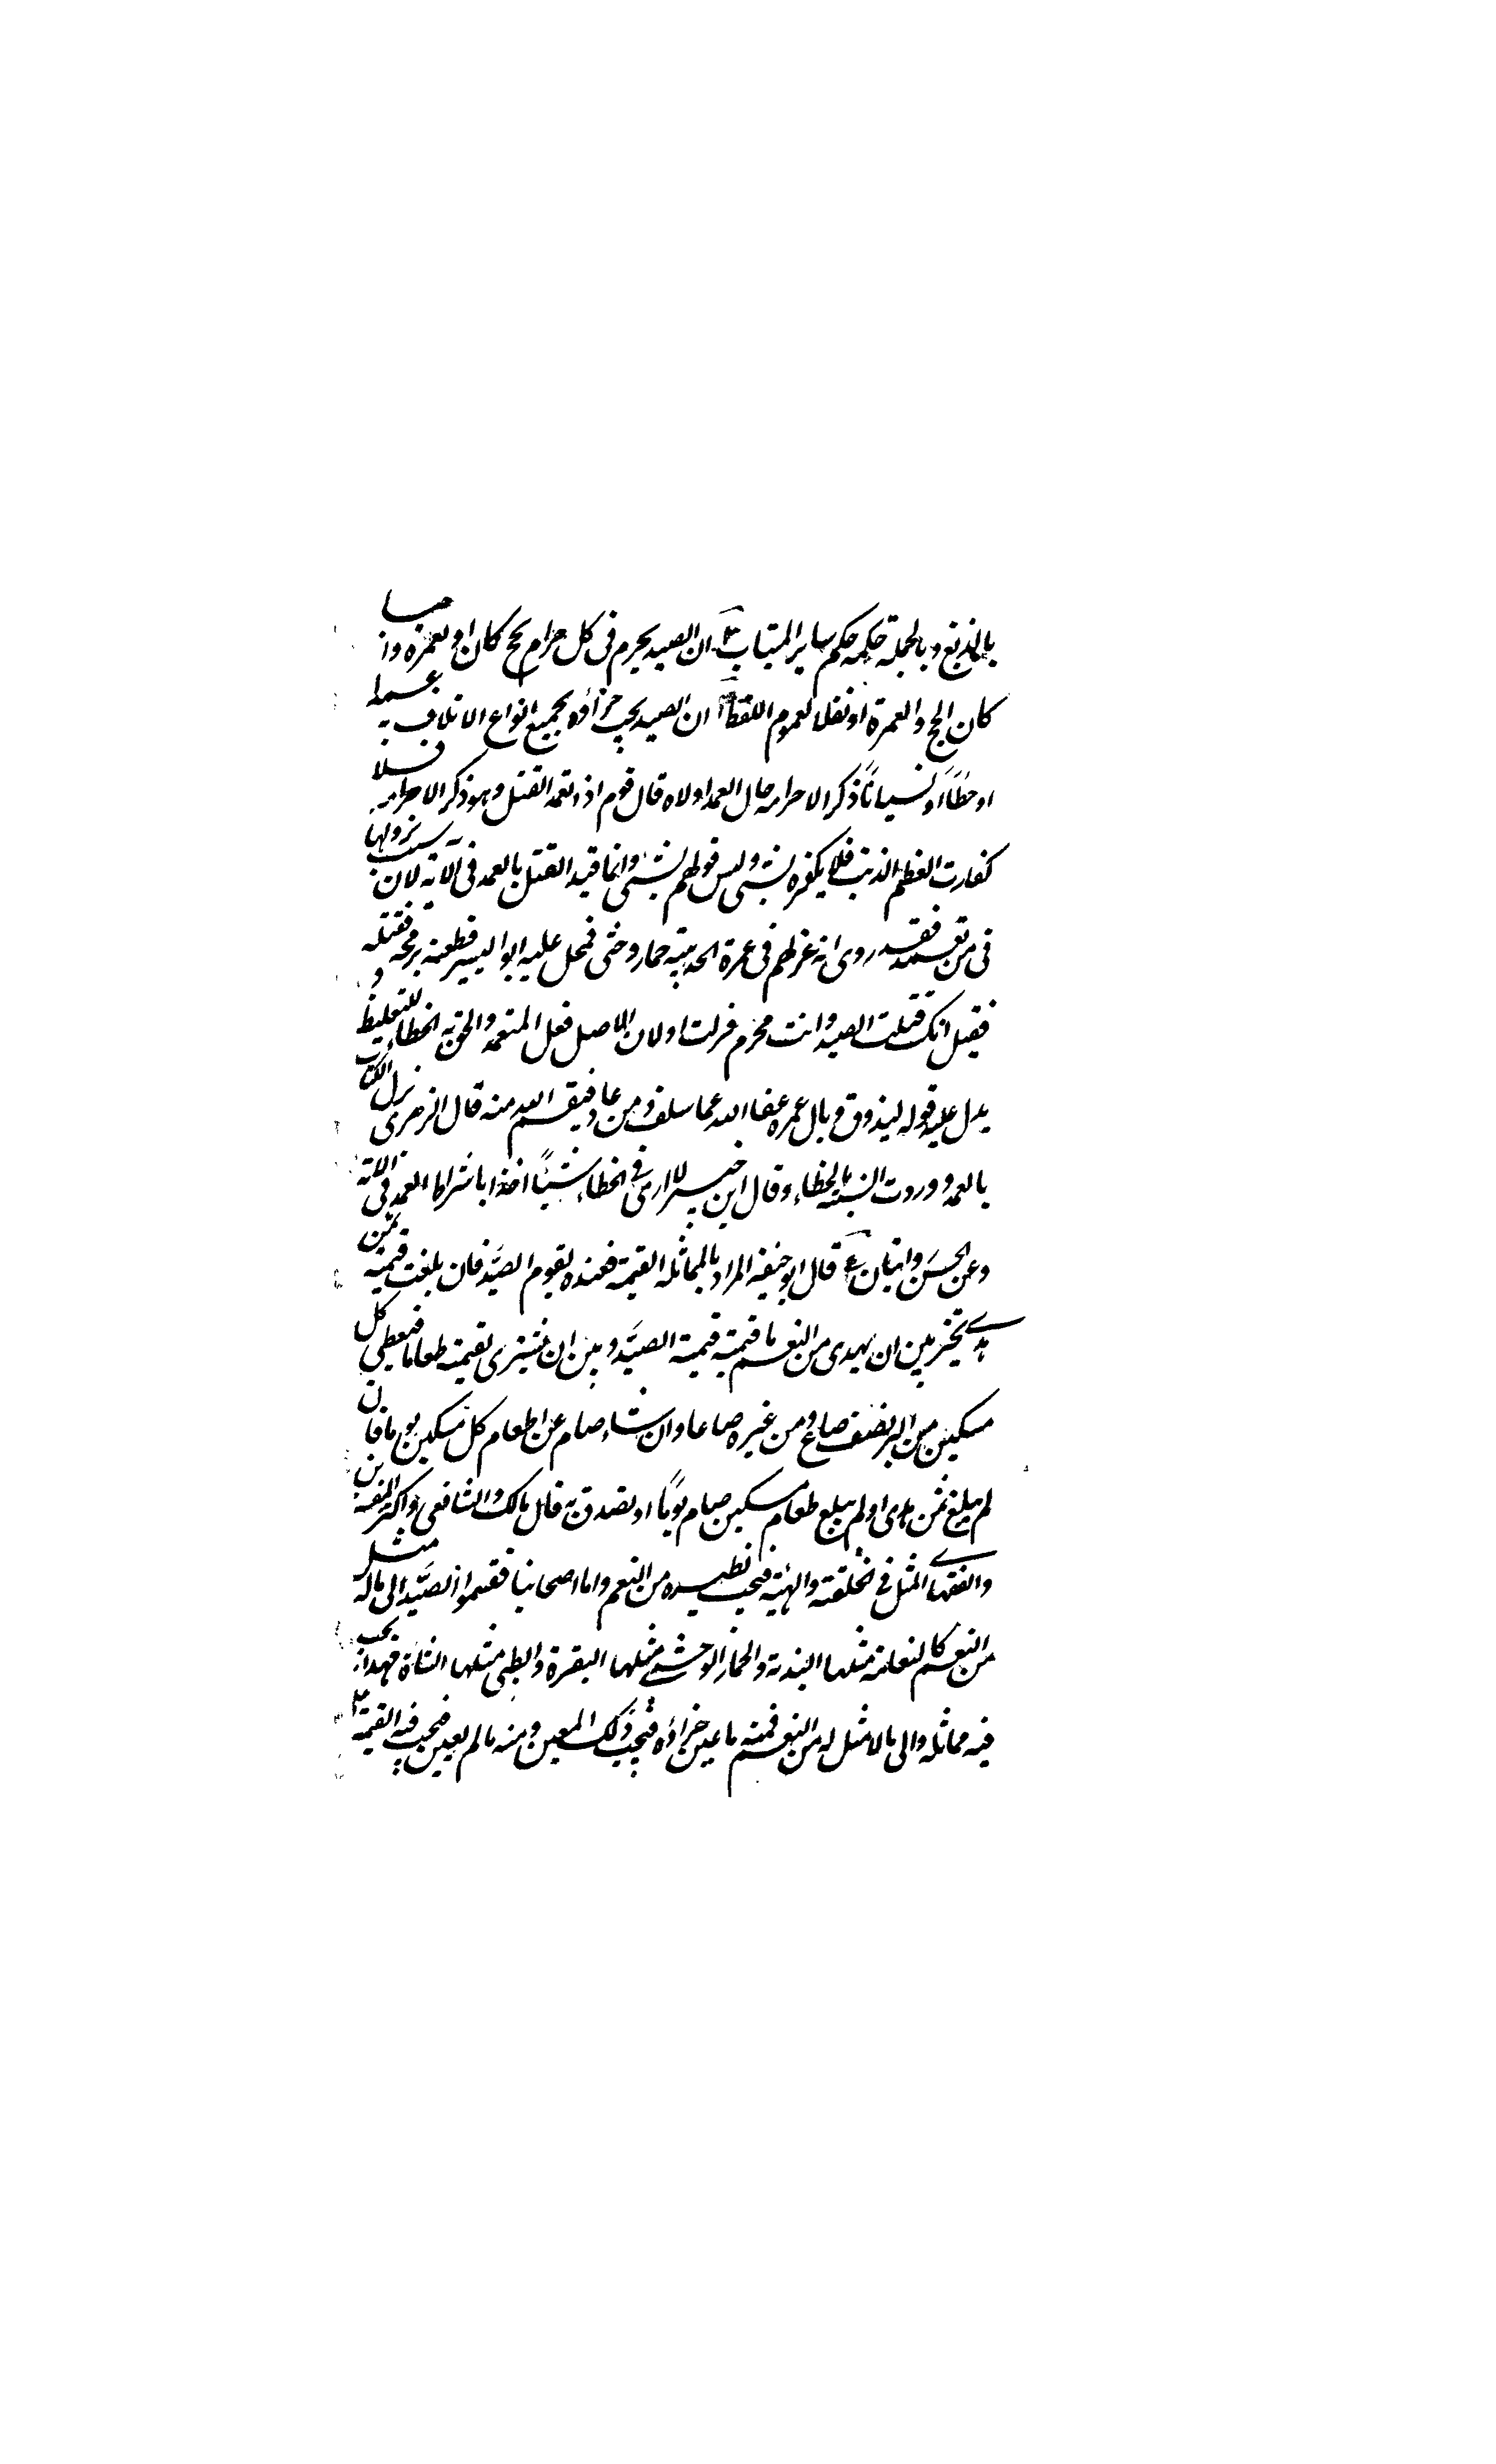 بالذبغ وبالجملة حكمه حكم ساير الميتات ٣ ان الصيد يحرم فى كل احرام بحج كان او بعمرة واجبا
كان الحج والعمرة او نفلا لعموم اللفظ ان الصيد يجب جزاؤه بجميع انواع الاتلاف به عمدا
او خطأً او نسياناً ذكر الاحرام حال العمد او لاه قال قوم اذا تعمد القتل وهو ذكر الاحرام فلا
كفارت العظم الذنب فلا يكفره بشىء وليس قولهم بشىء وانما قيد القتل بالعمد فى الآية لان سبب نزولها
فى من تعمد فقد روى انه عز لهم فى عمرة الحديبية حمار وحشى فحمل عليه ابو اليسر فطعنه برمحه فقتله
فقيل انك قتلت الصيد وانت محرم فنزلت او لان الاصل فعل المتعمد والحق به الخطاء للتغليظ و
يدل عليه قوله ليذوق وبال امره عفا الله عما سلف ومن عاد فينتقم الله منه قال الزهرى نزل الكتاب
بالعمد ووردت السنة بالخطاء وقال ابن جبير لا ارى فى الخطاء شيئاً اخذا باشتراط العمد فى الاية
وعن الحسن روايتان ع قال ابو حنيفه المراد بالمماثله القيمة فعنده يقوم الصيد فان بلغت قيمته ثمن
هدى تخير بين ان يهدى من النعم ما قيمته قيمة الصيد وبين ان يشترى بقيمته طعاما فيعطى كل
مسكين من البر نصف صاع ومن غيره صاعا وان شاء صام عن اطعام كل مسكين يوما فان
لم يبلغ ثمن هدى او لم يبلغ طعام مسكين صام يوماً او تصدق به قال مالك والشافعى واكثر المفسرين
والفقهاء المثل فى الخلقة والهيئة فيجب نظيره من النعم واما اصحابنا فقسموا الصيد الى ماله مثل
من النعم كالنعامة مثلها البدنة والحمار الوحشى مثلها البقرة والظبى مثلها الشاة فهذا يجب
فيه مماثله والى مالا مثل له من النعم فمنه ما عين جزاؤه فيجب ذلك المعين ومنه ما لم يعين فيجب فيه القيمة